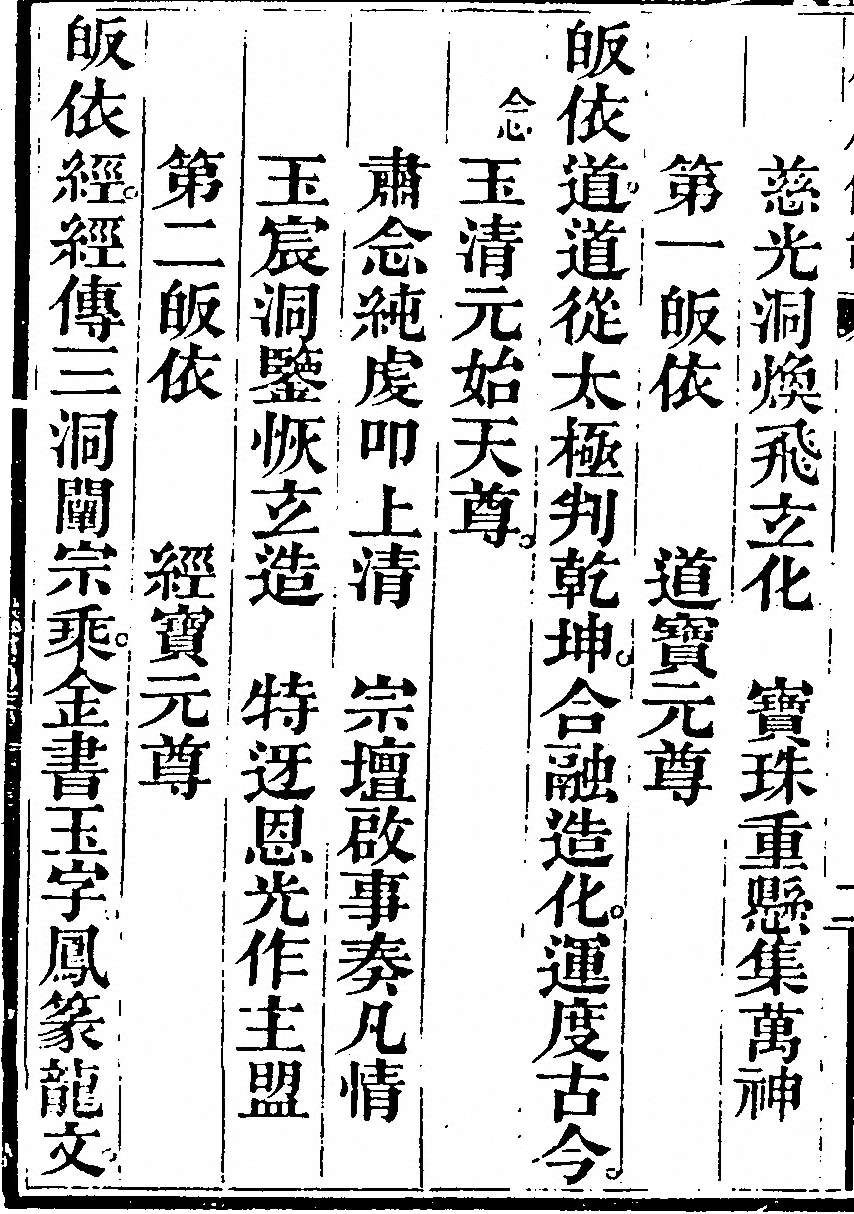 慈光洞煥飛立化　寶珠重懸集萬神
第一皈依　道寶元尊
皈依道。道從太極判乾坤。合融造化。運度古今。
念
玉清元始天尊。
肅念純虔叩上清　宗壇啟事奏凡情
玉宸洞鑒恢立造　特迓恩光作主盟
第二皈依　經寶元尊
皈依經。經傳三洞闡宗乘。金書玉字鳳篆龍文。
二